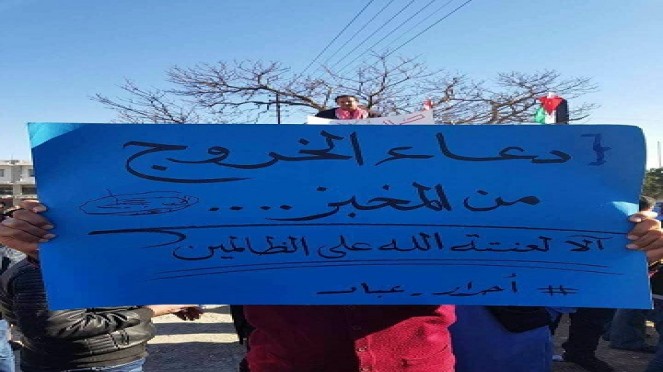 دعاء الخروج
من المخبز ....
ألا لعنتة الله على الظالمين
# أحرار_عباد